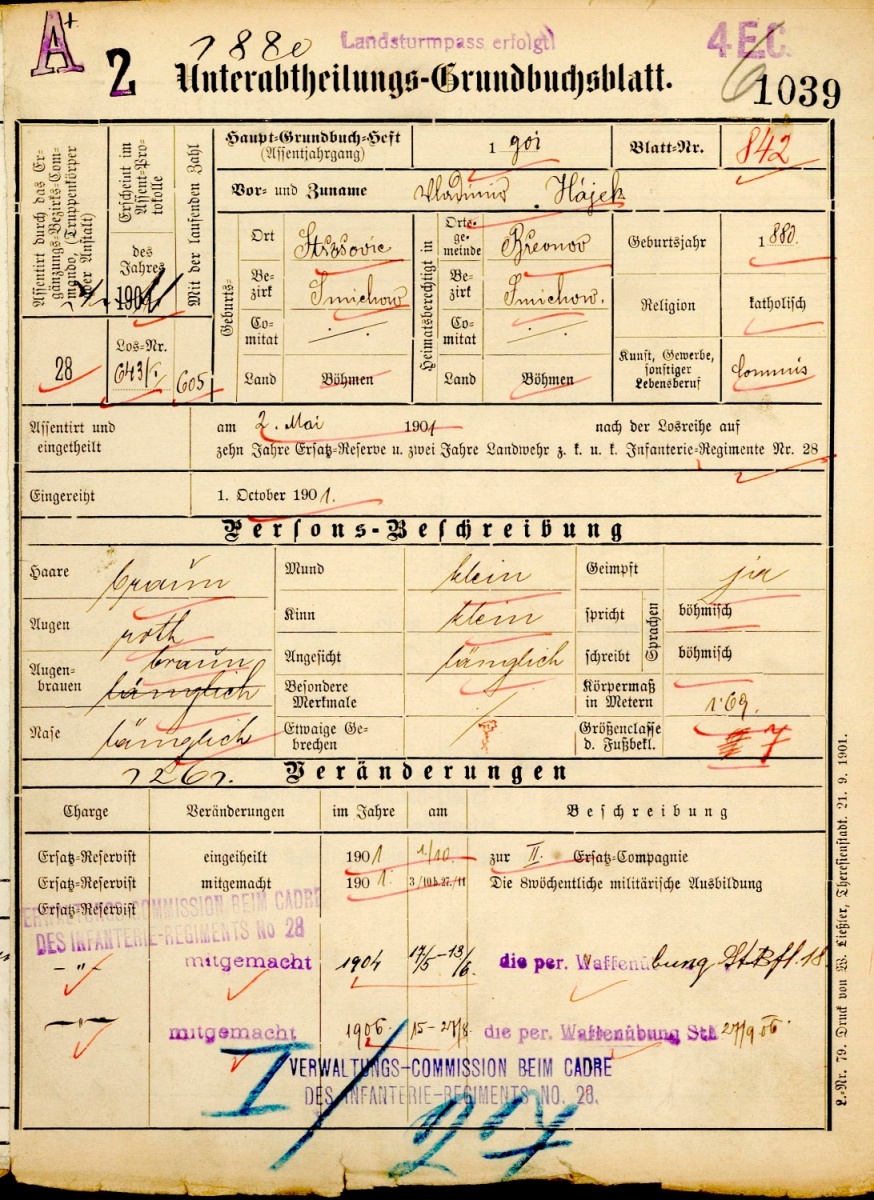 A+
2
1880
Landsturmpass erfolgt!
4 E.C.
6
Unterabtheilungs-Grundbuchsblatt.
1039
Assentirt durch das Ergänzungs-Bezirks-Commando, (Truppenkörper oder Anstalt)
28
Erscheint im Assent-Protokolle
des Jahres
1901
Los-Nr.
643/I.
Mit der laufenden Zahl
605
Haupt-Grundbuch-Heft
(Assentjahrgang)
1 901
Blatt-Nr.
842
Vor- und Zuname
Vladimir Hájek
Geburts-
Ort
Střešovic
Bezirk
Smichow
Comitat
Land
Böhmen
Heimatsberechtigt in
Ortsgemeinde
Břevnov
Bezirk
Smichow.
Comitat
Land
Böhmen
Geburtsjahr
1880.
Religion
katholisch
Kunst, Gewerbe, sonstiger Lebensberuf
Commis
Assentirt und eingetheilt
am 2. Mai 1901 nach der Losreihe auf
zehn Jahre Ersatz-Reserve u. zwei Jahre Landwehr z. k. u. k. Infanterie-Regimente Nr. 28
Eingereiht
1. October 1901.
Persons-Beschreibung
Haare braun
Augen roth
Augenbrauen braun
länglich
Nase länglich
Mund klein
Kinn klein
Angesicht länglich
Besondere Merkmale
Etwaige Gebrechen
Geimpft ja
Sprachen
spricht böhmisch
schreibt böhmisch
Körpermaß in Metern 1·69.
Größenclasse d. Fußbekl. 7
1261.
Veränderungen
Charge Veränderungen im Jahre am Beschreibung
Ersatz-Reservist eingeiheilt 1901 1/10. zur II. Ersatz-Compagnie
Ersatz-Reservist mitgemacht 1901. 3/10 b. 27./11 Die 8wöchentliche militärische Ausbildung
Ersatz-Reservist
VERWALTUNGS-COMMISSION BEIM CADRE
DES INFANTERIE-REGIMENTS No 28
- " - mitgemacht 1904 17/5-13/6. die per. Waffenübung
- " - mitgemacht 1906 15-27/8. die per. Waffenübung 27/9 06.
VERWALTUNGS-COMMISSION BEIM CADRE
DES INFANTERIE-REGIMENTS NO. 28.
I/27
L.-Nr. 79. Druck von W. Ließler, Theresienstadt. 21. 9. 1901.